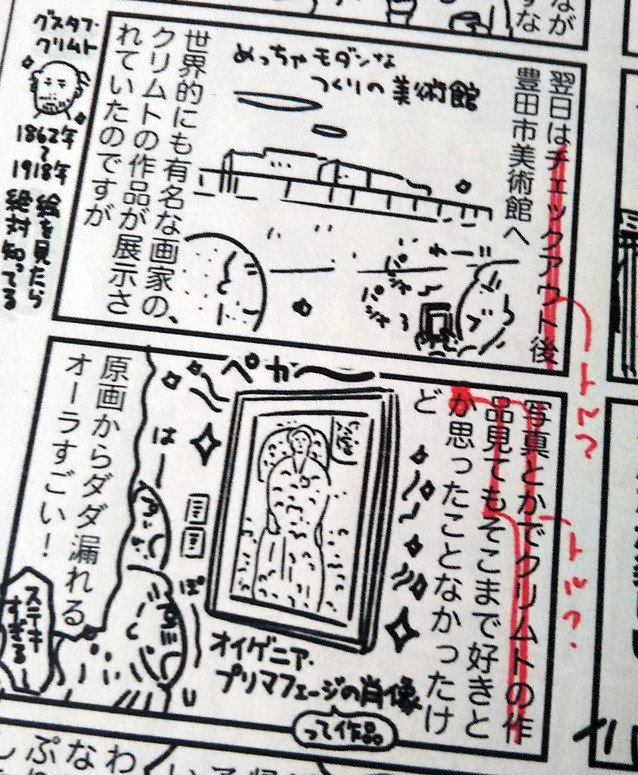 ながな
翌日はチェックアウト後
豊田市美術館へ
トル?
めっちゃモダンな
つくりの美術館
わーー
パシャ
パシャ
世界的にも有名な画家の、
クリムトの作品が展示さ
れていたのですが
グスタフ・
クリムト
1862年
〜
1918年
絵を見たら
絶対知ってる
写真とかでクリムトの作
品見てもそこまで好きと
か思ったことなかったけ
ど
トル?
ペカーー
はー
ぽ
オイゲニア・
プリマフェージの肖像
って作品
原画からダダ漏れる
オーラすごい!
ステキ
すぎる